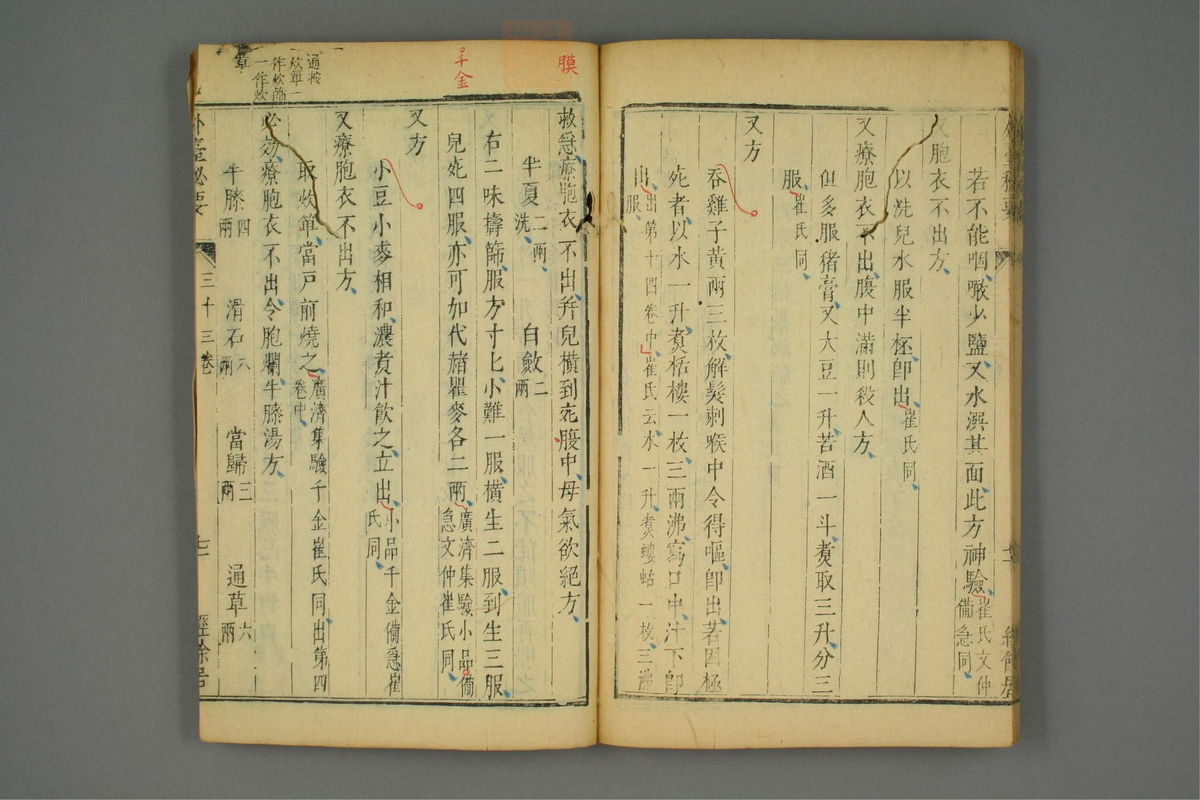 若不能咽嚥少鹽又水潠其面此方神驗崔氏文仲備急同
又胞衣不出方
以洗兒水服半杯卽出崔氏同
又療胞衣不出腹中滿則殺人方
但多服猪膏又大豆一升苦酒一斗煑取三升分三
服崔氏同
又方
吞雞子黃兩三枚解髮刺喉中令得嘔卽出若困極
死者以水一升煑栝樓一枚三兩沸寫口中汁下卽
出出第十四卷中崔氏云水一升煑螻蛄一枚三沸服
膜
千金
救急療胞衣不出并兒橫到死腹中母氣欲絕方
半夏二兩洗 白斂二兩
右二味擣篩服方寸匕小難一服橫生二服到生三服
兒死四服亦可加代赭瞿麥各二兩廣濟集驗小品備急文仲崔氏同
又方
小豆小麥相和濃煑汁飲之立出小品千金備急崔氏同
又療胞衣不出方
取炊箄當戸前燒之廣濟集驗千金崔氏同出第四卷中
通按炊箄一作炊箒一作炊
必効療胞衣不出令胞爛牛膝湯方
牛膝四兩 滑石八兩 當歸三兩 通草六兩
外臺秘要 三十三卷 經餘居